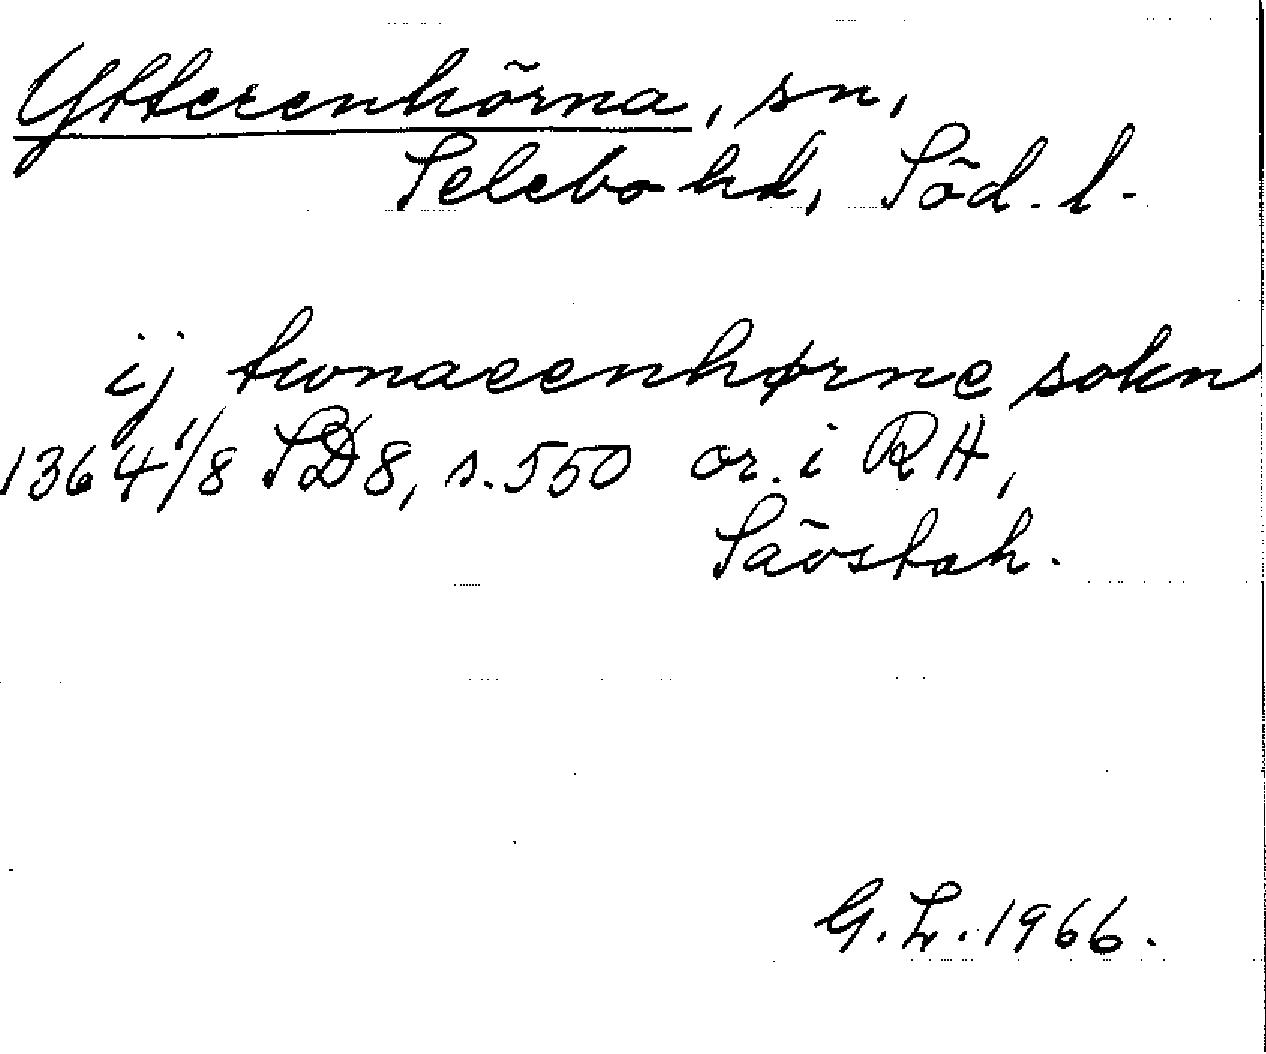 Ytterenhörna, sn,
Selebo hd, Söd. l.
ij twnaeenhørne sokn
1364 1/8 SD 8, s. 550 or. i RH,
Sävstah.
G. L. 1966.